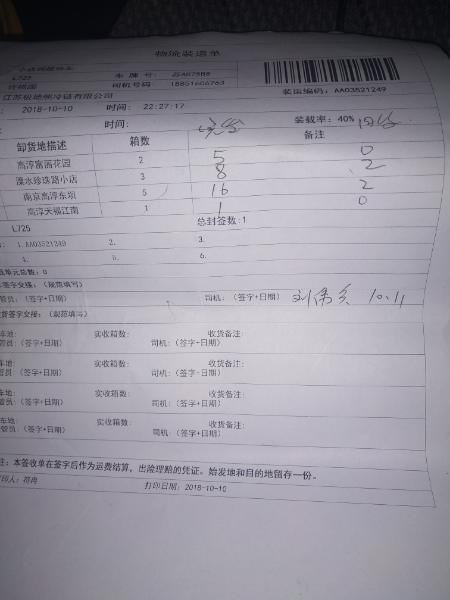 物流装运单
L725 车 牌 号:
司机号码: 18851606763
江苏极地熊冷链有限公司 装运编码: AA03521249
: 2018-10-10 时间: 22:27:17
时间: 装载率: 40%
卸货地描述 箱数 备注
高淳富茜花园 2 5 0
溧水珍珠路小店 3 8 2
南京高淳东坝 5 16 2
高淳天福江南 1 1 0
L725 总封签数:1
: 1.AA03521249 2. 3.
4. 5. 6.
单元总数: 0
签字交接: (规范填写)
管员: (签字+日期) 司机: (签字+日期) 10.11
货签字交接: (规范填写)
车地: 实收箱数: 收货备注:
管员: (签字+日期) 司机: (签字+日期)
车地: 实收箱数: 收货备注:
管员: (签字+日期) 司机: (签字+日期)
车地: 实收箱数: 收货备注:
管员: (签字+日期) 司机: (签字+日期)
车地: 实收箱数: 收货备注:
管员: (签字+日期) 司机: (签字+日期)
注: 本签收单在签字后作为运费结算, 出险理赔的凭证。始发地和目的地留存一份。
打印人: 符冉 打印日期: 2018-10-10